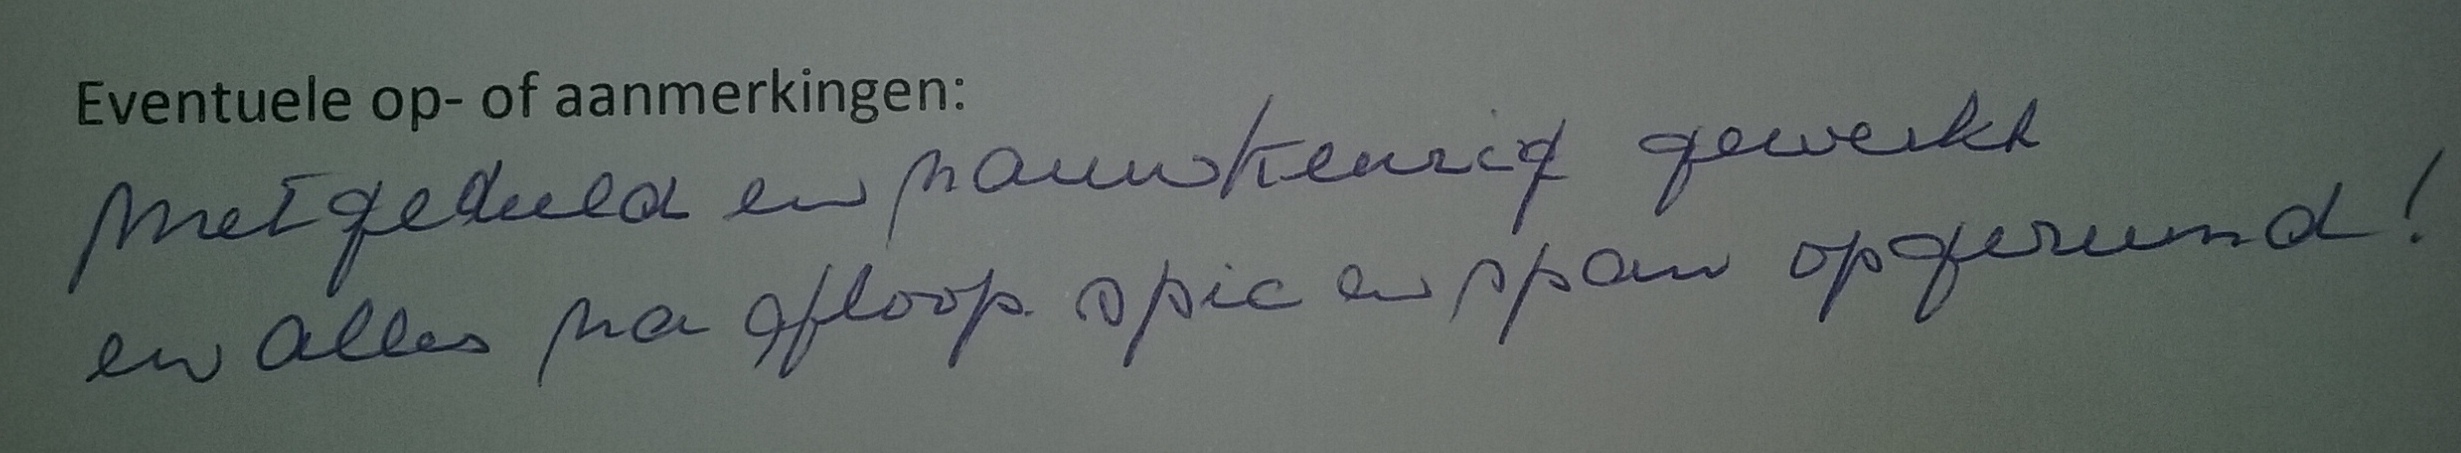 Eventuele op- of aanmerkingen:
Met geduld en nauwkeurig gewerkt
en alles na afloop spic en span opgeruimd!